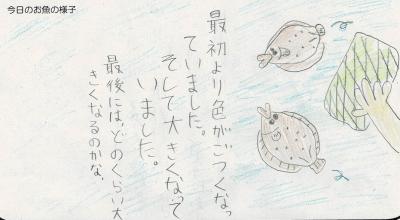 今日のお魚の様子
最初より色がごつくなっ
ていました。
そして大きくなって
いました。
最後には、どのくらい大
きくなるのかな、